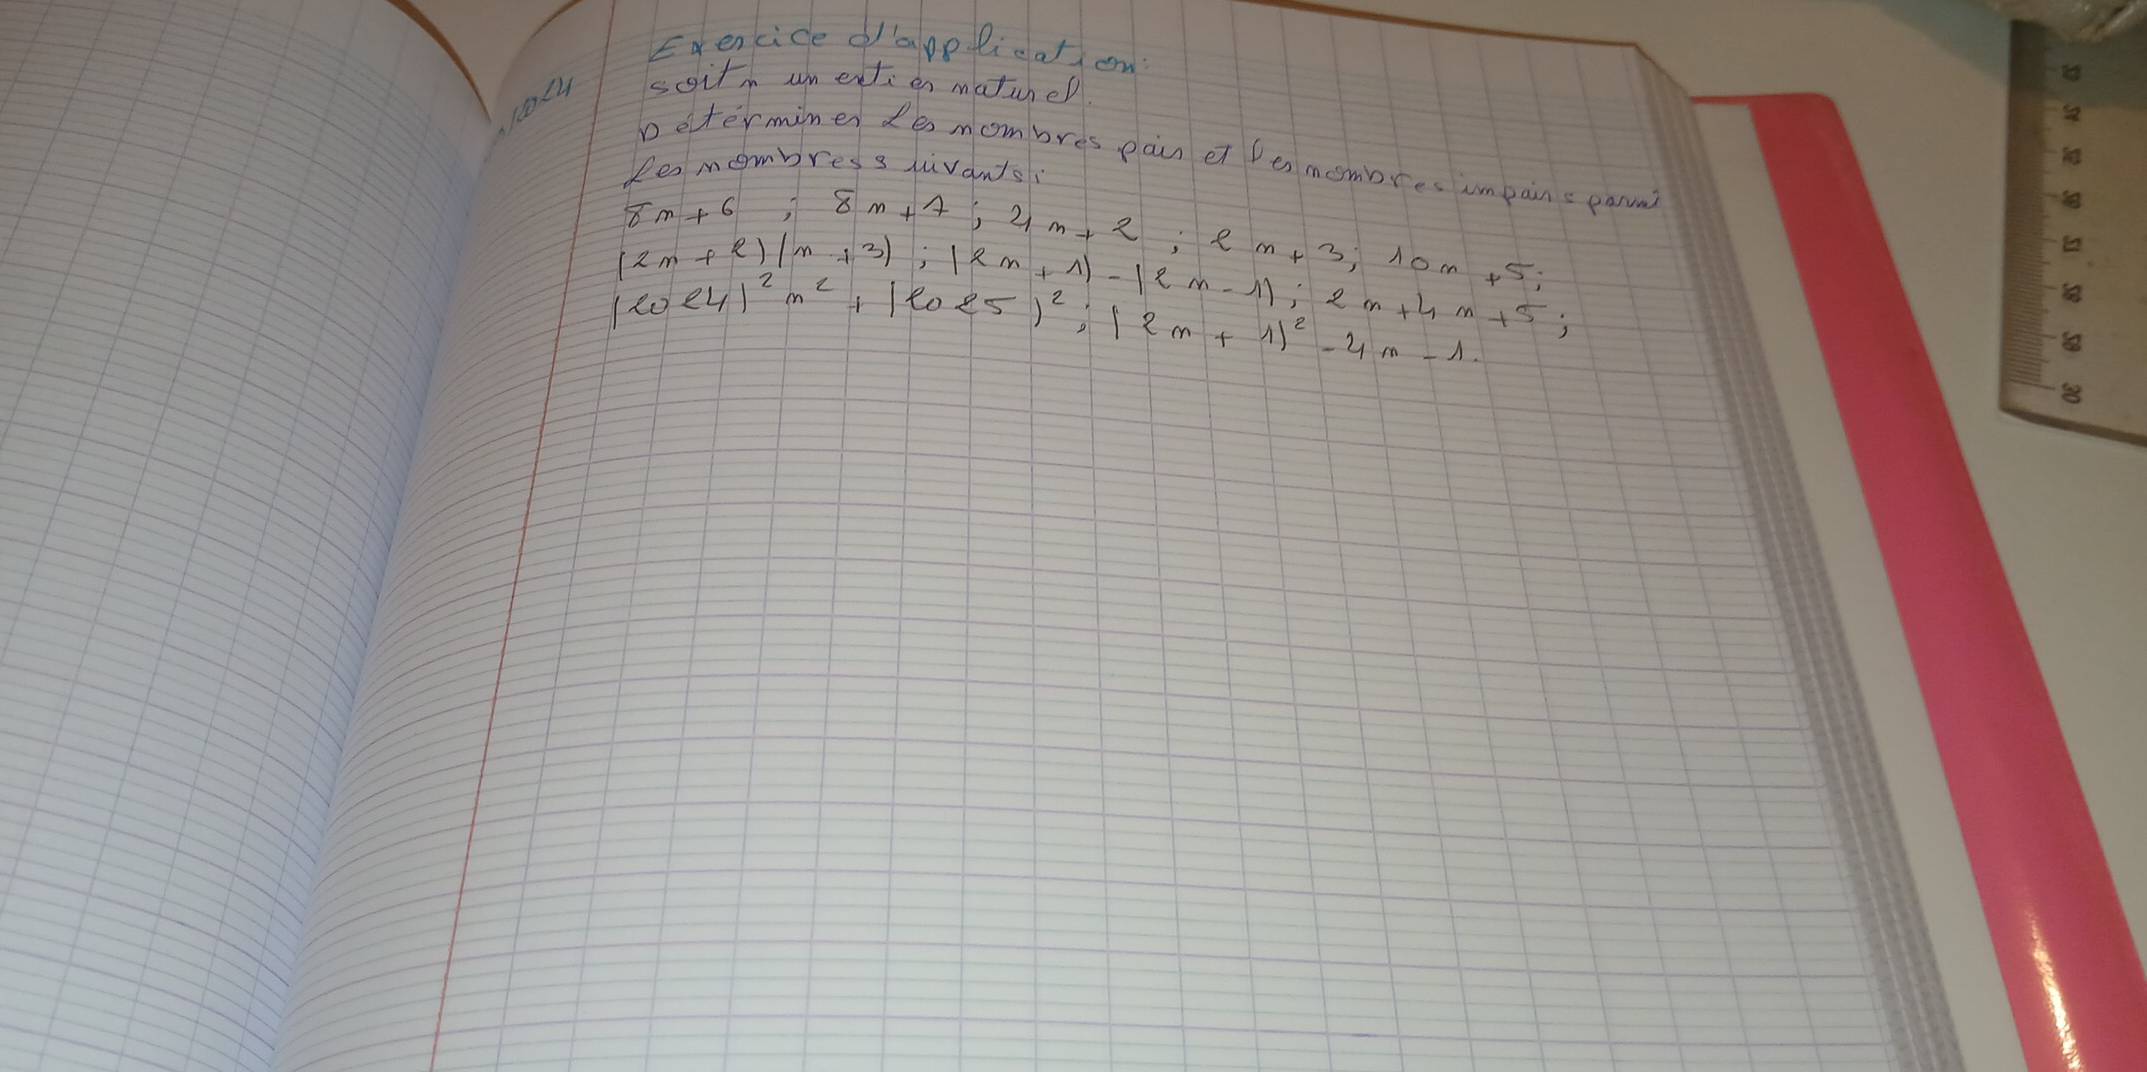 Exercice d'application:
soit n un entier naturel.
Déterminer les nombres pair et les nombres impairs parmi
les nombres suivants:
8n+6 ; 8n+7 ; 4n+2 ; 2n+3; 10n+5;
(2n+2)(n+3) ; (2n+1)-(2n-1) ; 2n+4n+5 ;
(2024)²n² + (2025)² ; (2n+1)² -4n-1.
32
33
34
35
37
38
39
30